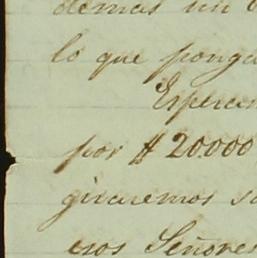 demas un
lo que ponga
Esperan
por $ 20.000
giraremos so
esos Señores